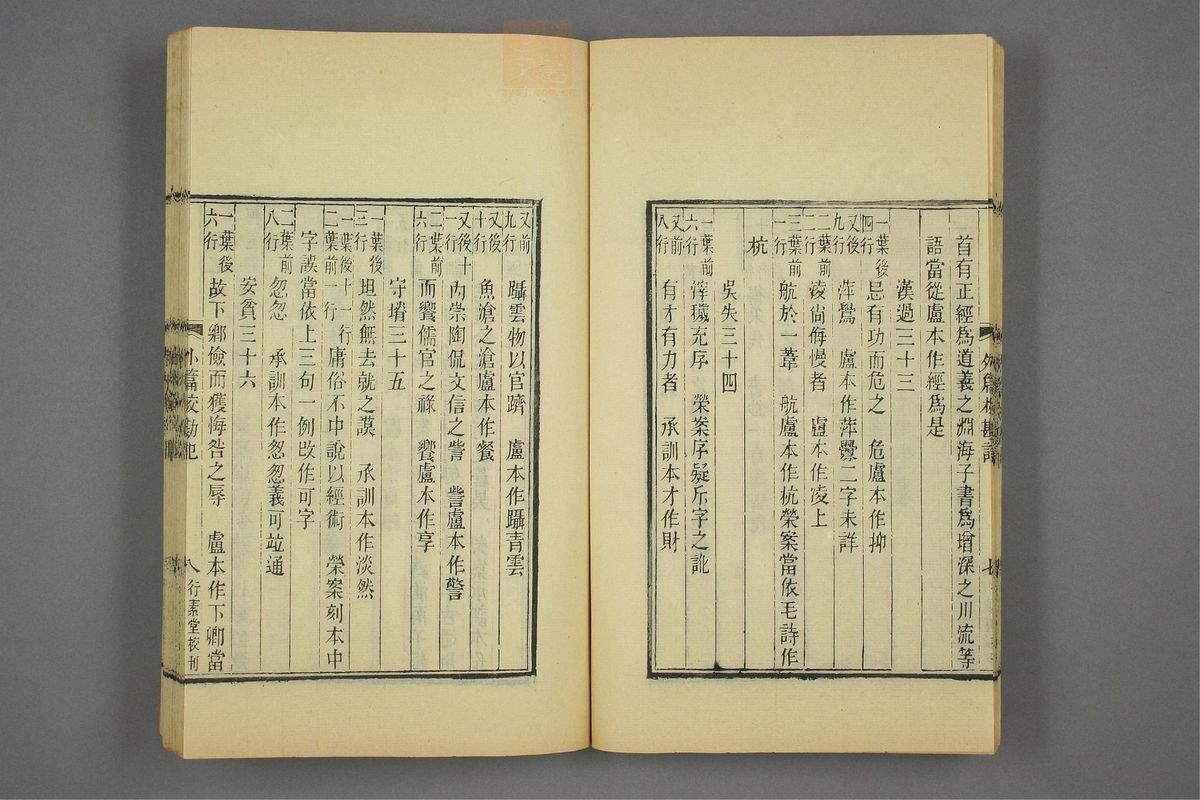 首有正經爲道義之淵海子書爲增深之川流等
語當從盧本作經爲是
漢過三十三
一葉後四行 忌有功而危之 危盧本作抑
又後九行 萍鷽 盧本作萍釁二字未詳
二葉前二行 凌尙侮慢者 盧本作凌上
三葉前一行 航於一葦 航盧本作杭榮案當依毛詩作
杭
吳失三十四
一葉前六行 滓穢充序 榮案序疑斥字之訛
又前八行 有才有力者 承訓本才作財
又前九行 躡雲物以官躋 盧本作躡靑雲
又後十行 魚滄之滄盧本作餐
又後十一行 內崇陶侃文信之訾 訾盧本作警
二葉前六行 而饗儒官之祿 饗盧本作享
守塉三十五
一葉後三行 坦然無去就之謨 承訓本作淡然
一葉後十一行二葉前一行 庸俗不中說以經術 榮案刻本中
字誤當依上三句一例改作可字
二葉前八行 忽忽 承訓本作忽怱義可竝通
安貧三十六
一葉後六行 故下鄉儉而獲悔咎之辱 盧本作下卿當
八 行素堂校刊